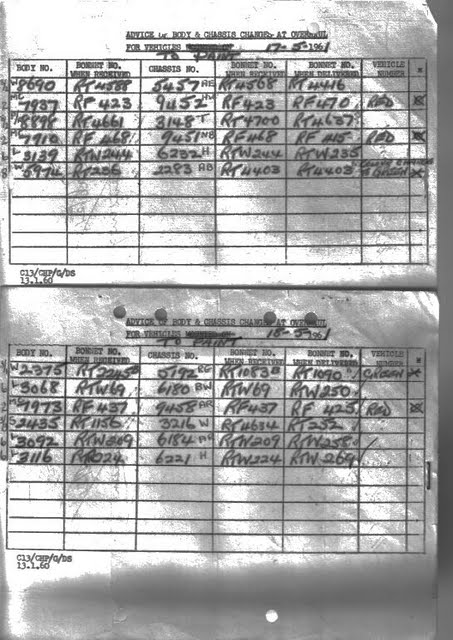 ADVICE OF BODY & CHASSIS CHANGES AT OVERHAUL
FOR VEHICLES 17-5-1961
TO PAINT
BODY NO. BONNET NO. WHEN RECEIVED CHASSIS NO. BONNET NO. WHEN RECEIVED BONNET NO. WHEN DELIVERED VEHICLE NUMBER
8690 RT4588 5457 RE RT4568 RT4416
7937 RF423 9452 RF423 RF470 RED
8898 RT4661 3148 T RT4700 RT4637
7910 RF468 9451 NB RF468 RED
3139 RTW244 6232 H RTW244 RTW235
RT236 2283 AB RT4403 RT4403 GREEN
C13/CHP/G/DS
13.1.60
ADVICE OF BODY & CHASSIS CHANGES AT OVERHAUL
FOR VEHICLES 18-5-1961
TO PAINT
BODY NO. BONNET NO. WHEN RECEIVED CHASSIS NO. BONNET NO. WHEN RECEIVED BONNET NO. WHEN DELIVERED VEHICLE NUMBER
2375 RT2245 5192 RE RT1083 RT1090 GREEN
3068 RTW69 6180 BW RTW69 RTW250
7973 RF437 9458 AR RF437 RF425 RED
2435 RT1156 3216 W RT4634 RT252
3092 RTW209 6184 RTW209 RTW258
3116 6221 H RTW224 RTW269
C13/CHP/G/DS
13.1.60